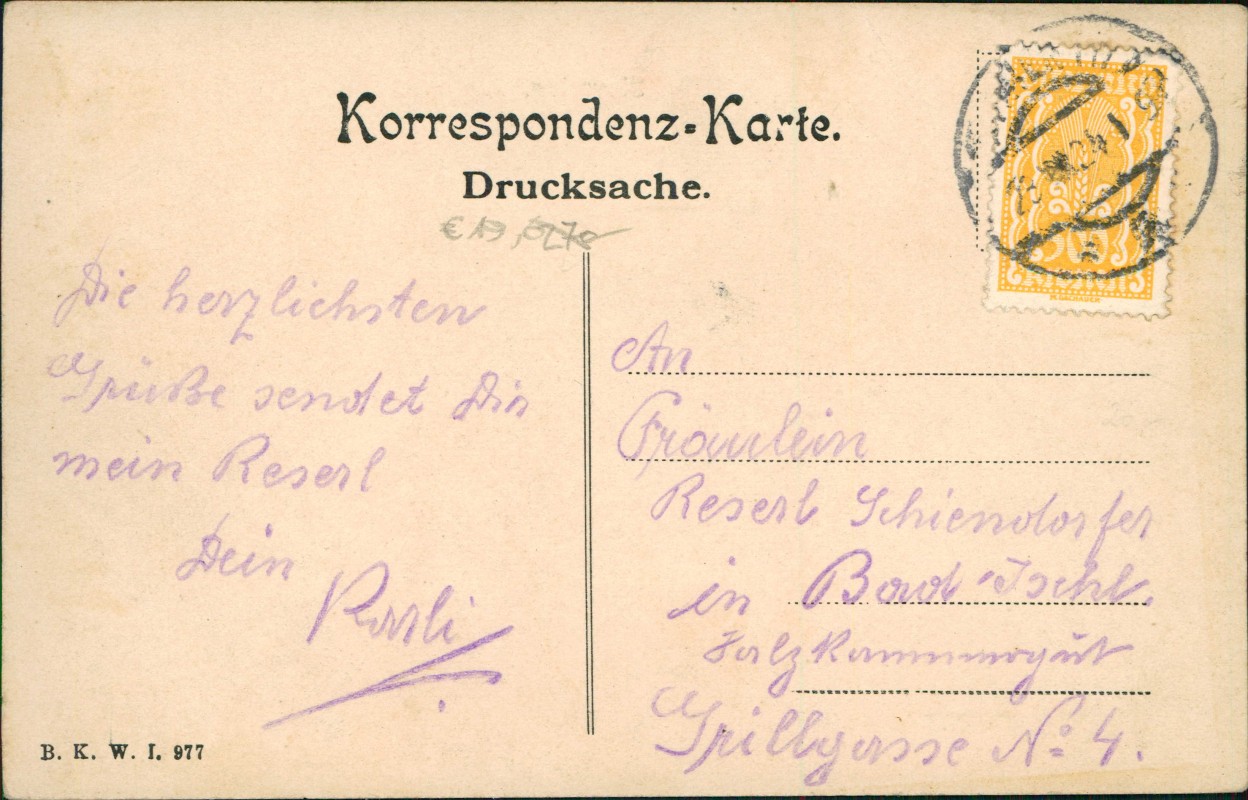 Korrespondenz-Karte.
Drucksache.
Die herzlichsten
Grüße sendet Dir
mein Reserl
Dein
Karli
An
Fräulein
Reserl Schiendorfer
in Bad Ischl.
Salzkammergut
Grillgasse No 4.
B. K. W. I. 977